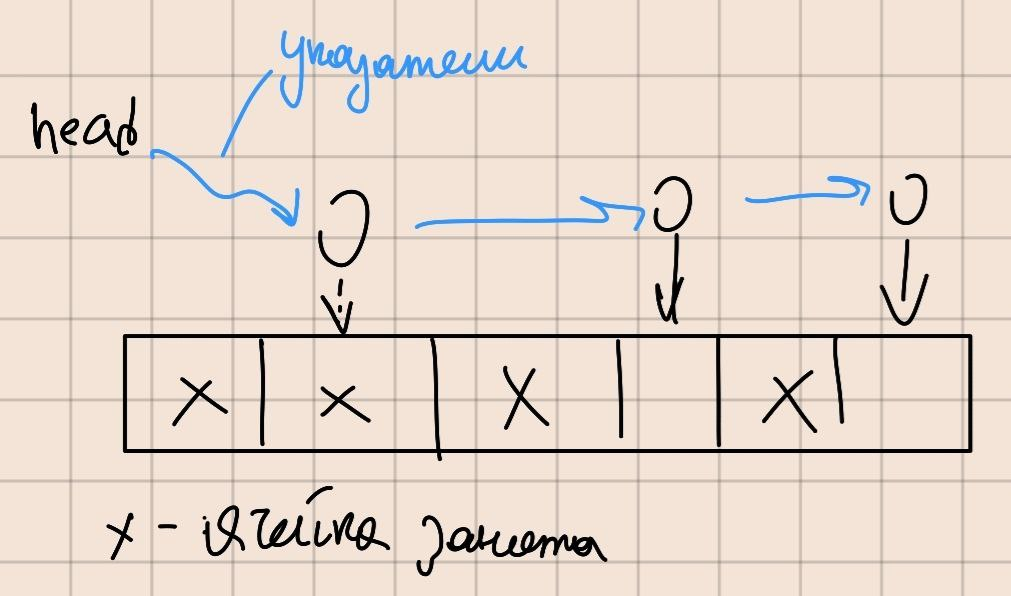 указатели
head
x - ячейка занята